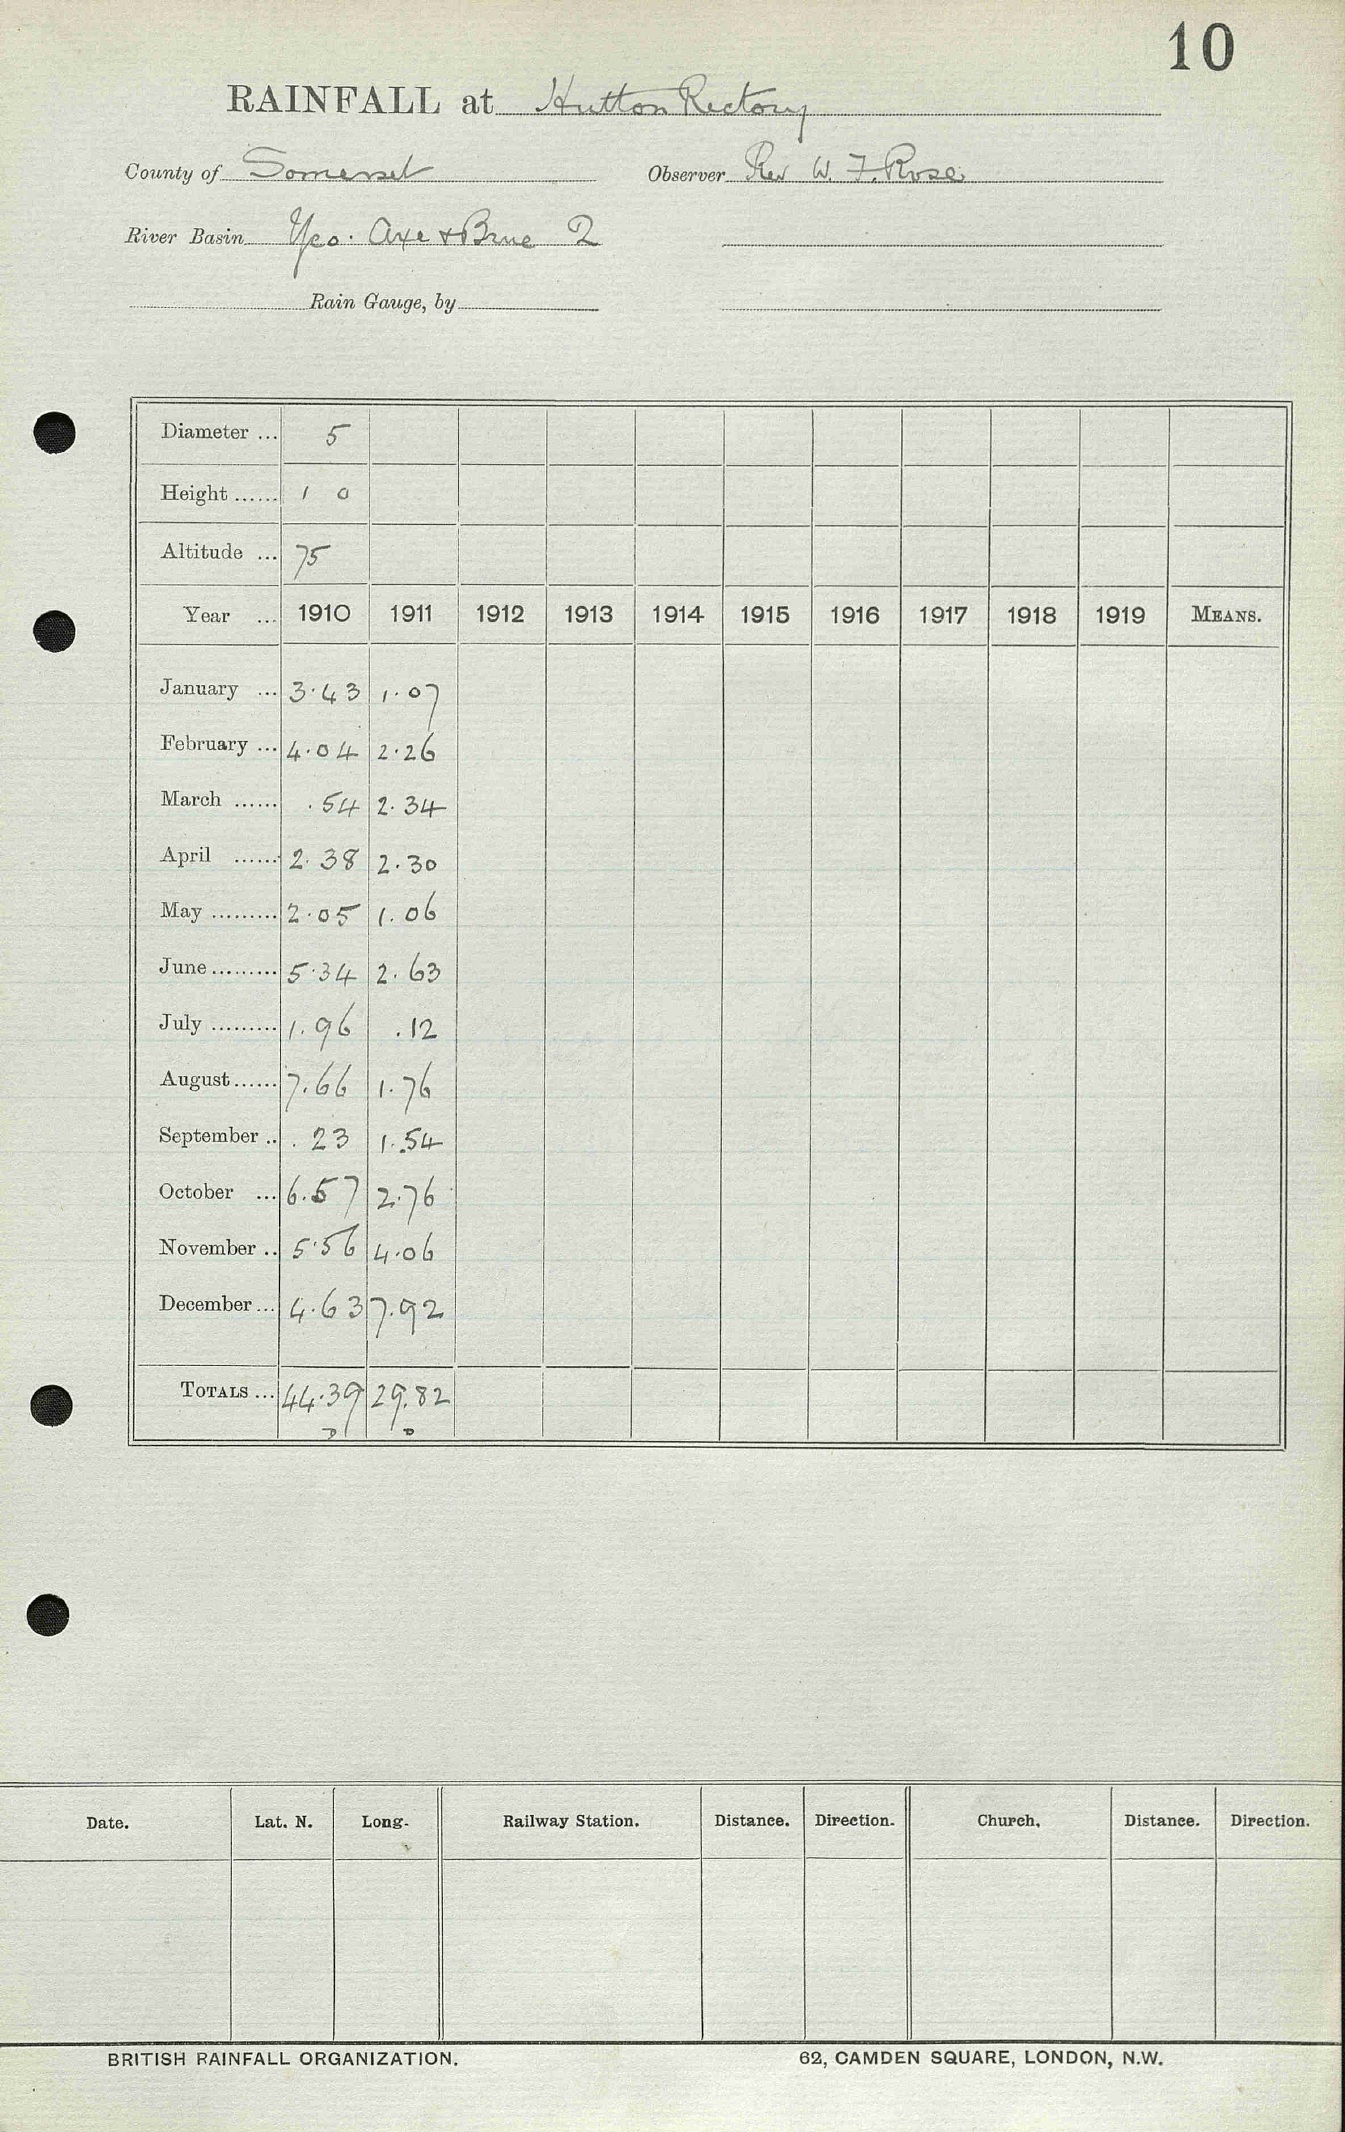 10
RAINFALL at Hutton Rectory
County of Somerset Observer Rev W. F. Rose
River Basin Yeo. Axe & Brue 2
Rain Gauge, by
Diameter ... 5
Height ...... 1 0
Altitude ... 75
Year ... 1910 1911 1912 1913 1914 1915 1916 1917 1918 1919 MEANS.
January ... 3.43 1.07
February ... 4.04 2.26
March ...... .54 2.34
April ...... 2.38 2.30
May ......... 2.05 1.06
June ......... 5.34 2.63
July ......... 1.96 .12
August ...... 7.66 1.76
September .. .23 1.54
October ... 6.57 2.76
November .. 5.56 4.06
December ... 4.63 7.92
TOTALS ... 44.39 29.82
D D
Date. Lat. N. Long. Railway Station. Distance. Direction. Church. Distance. Direction.
BRITISH RAINFALL ORGANIZATION. 62, CAMDEN SQUARE, LONDON, N.W.